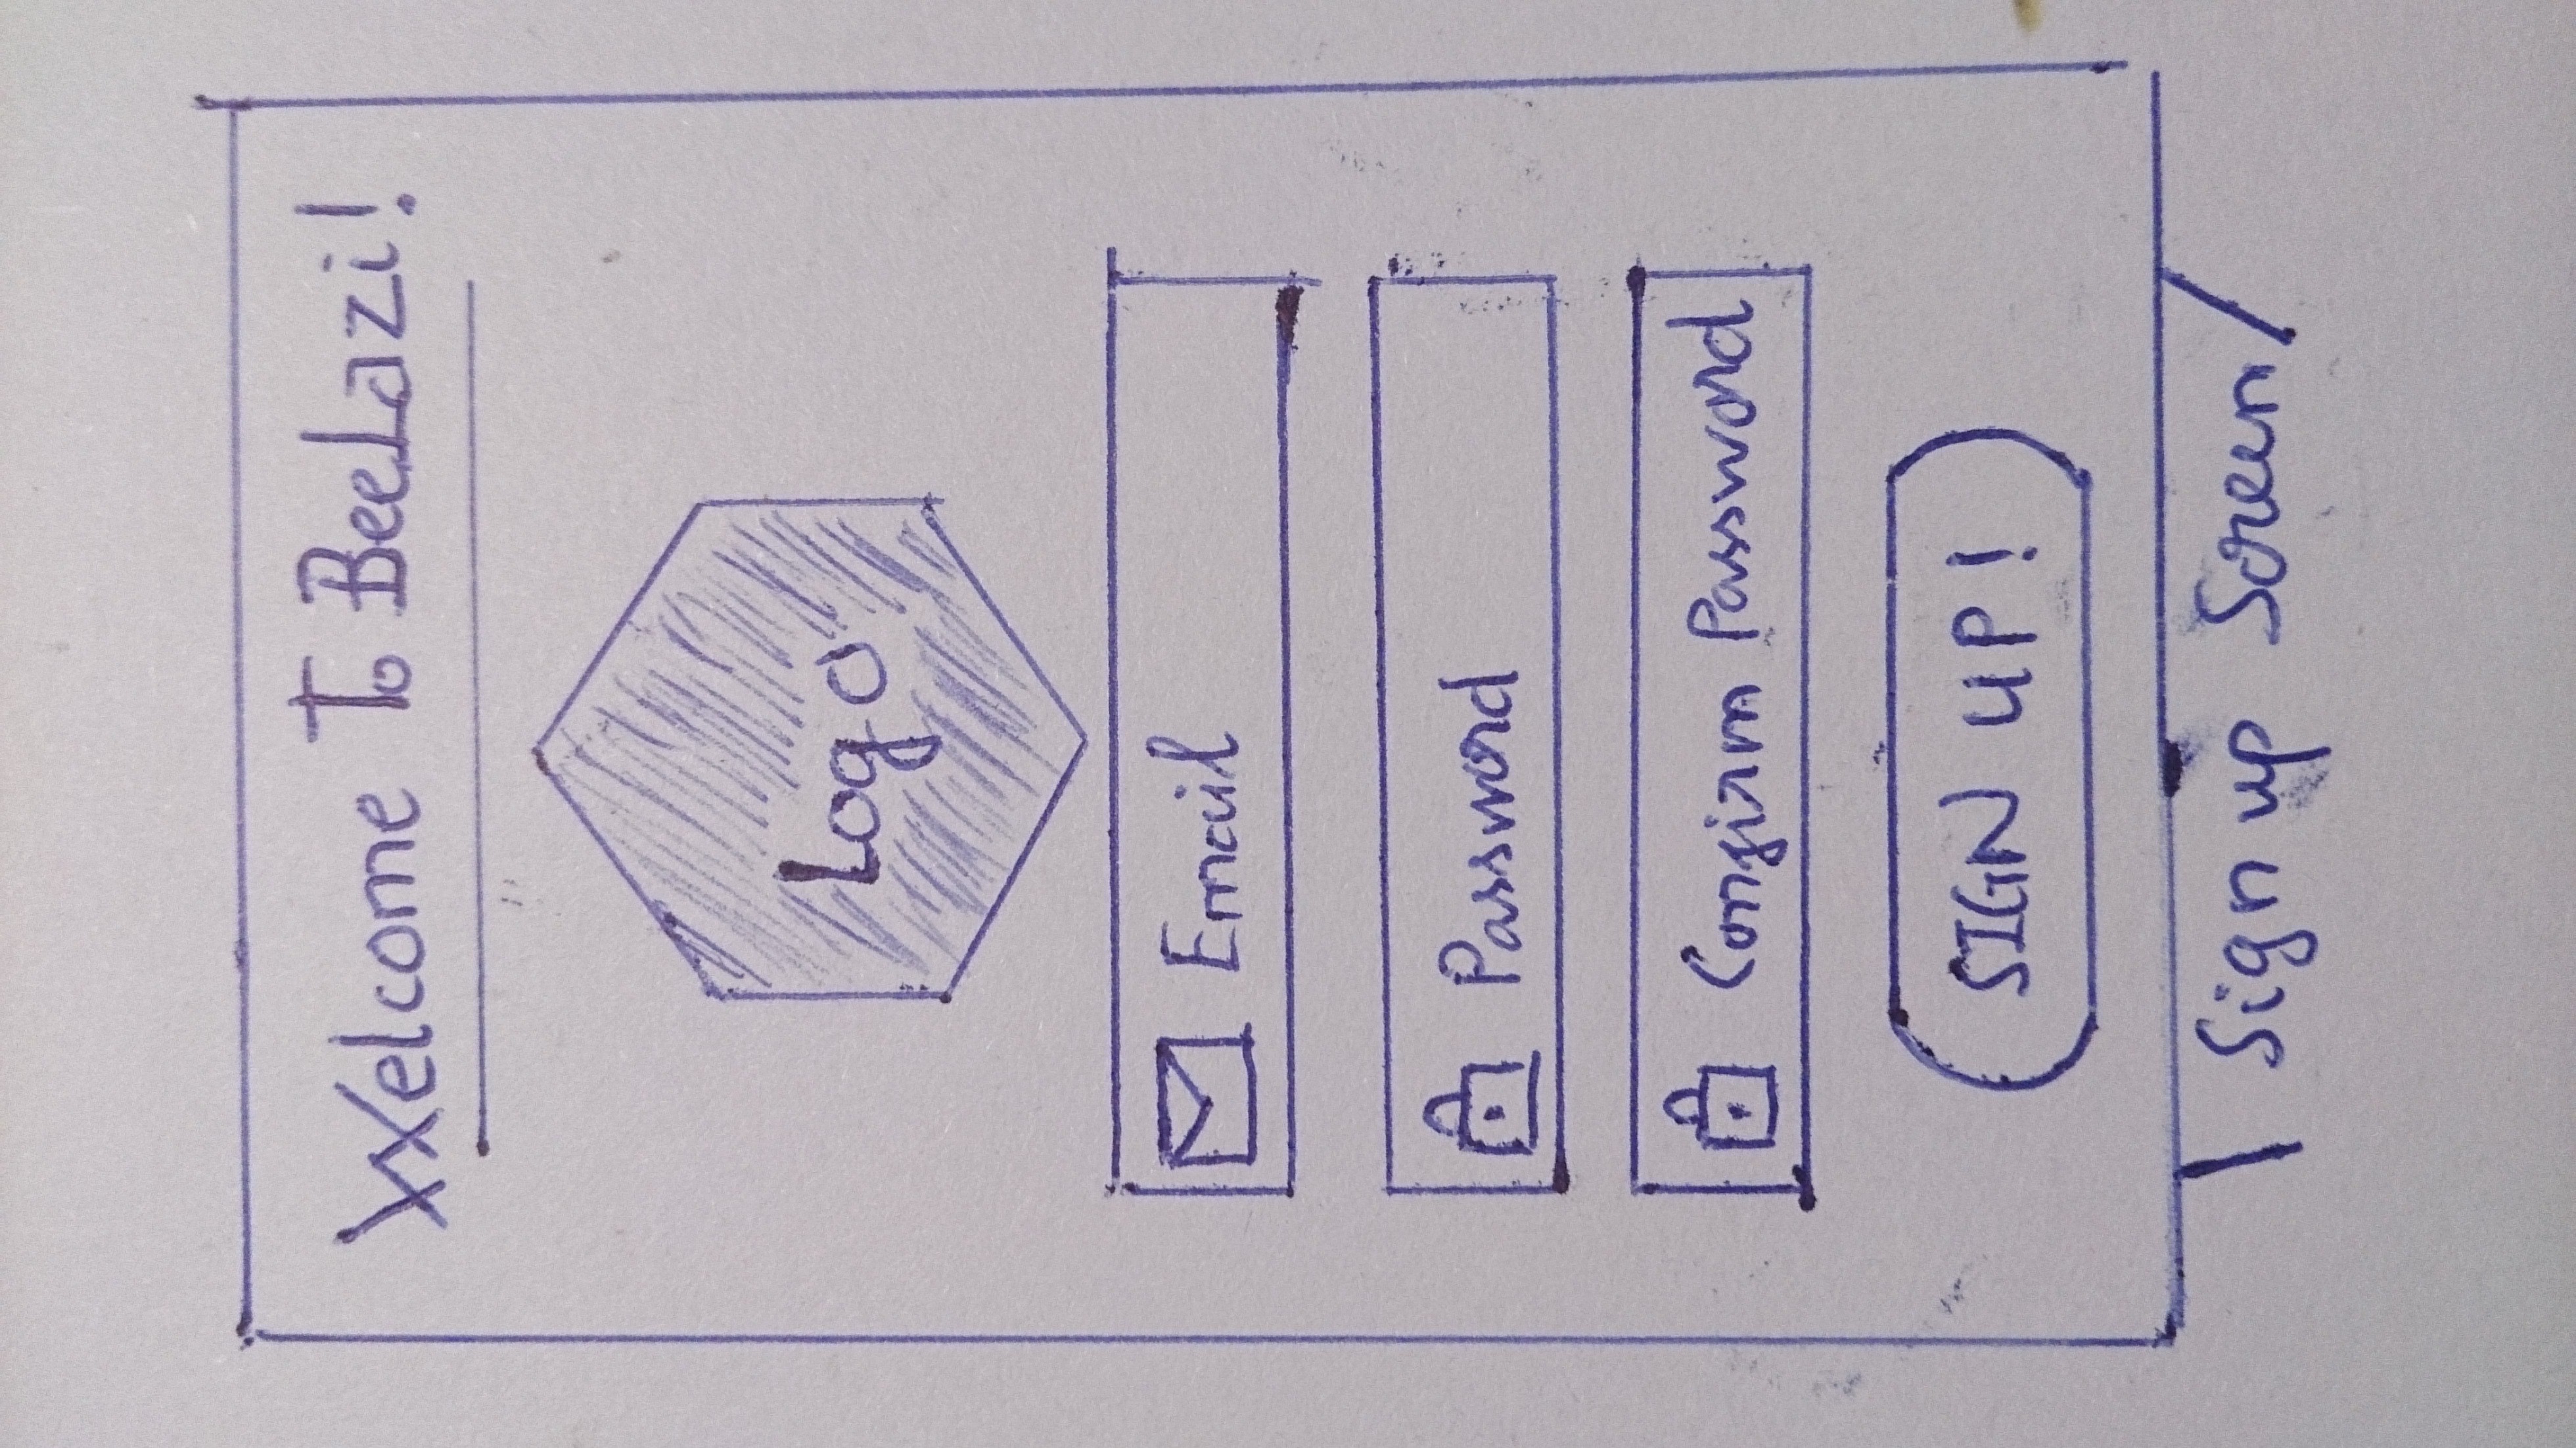 Welcome To BeeLazi!
Logo
Email
Password
Confirm Password
SIGN UP!
Sign up Screen